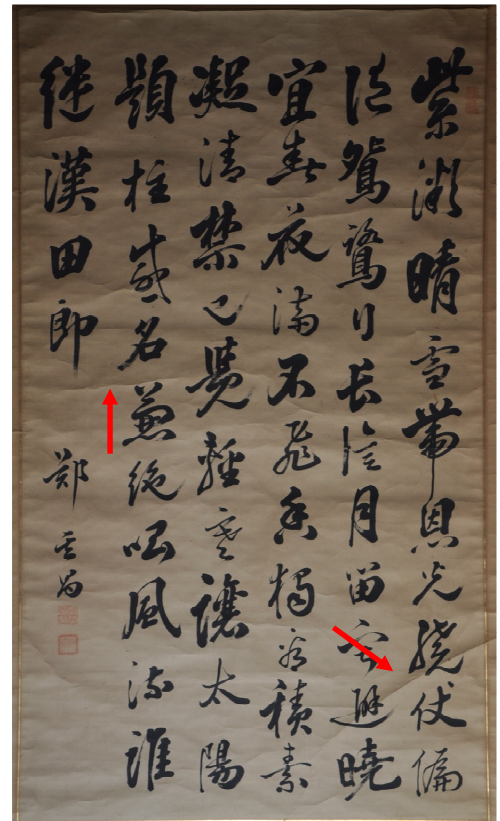 紫微晴雪帶恩光繞仗偏
随鴛鷺行長信月留寧避曉
宜春花滿不飛香獨看積素
凝清禁已覺輕寒讓太陽
題柱盛名兼絕唱風流誰
継漢田郎
鄭